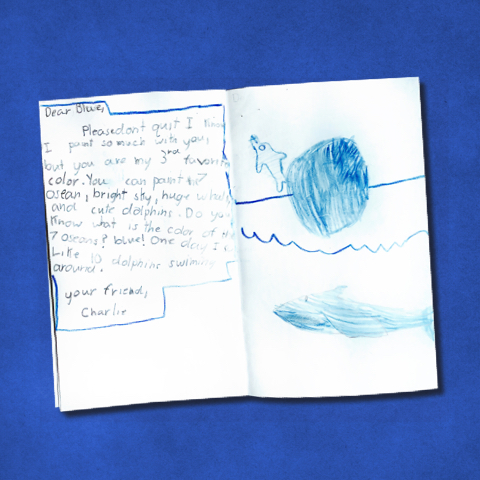 Dear Blue,
Pleasedont quit I know
I paint so much with you,
but you are my 3rd favorit
color. You can paint 7
osean, bright sky, huge whales
and cute dolphins. Do you
know what is the color of the
7 oseans? blue! One day I
Like 10 dolphins swiming
around.
your friend,
Charlie